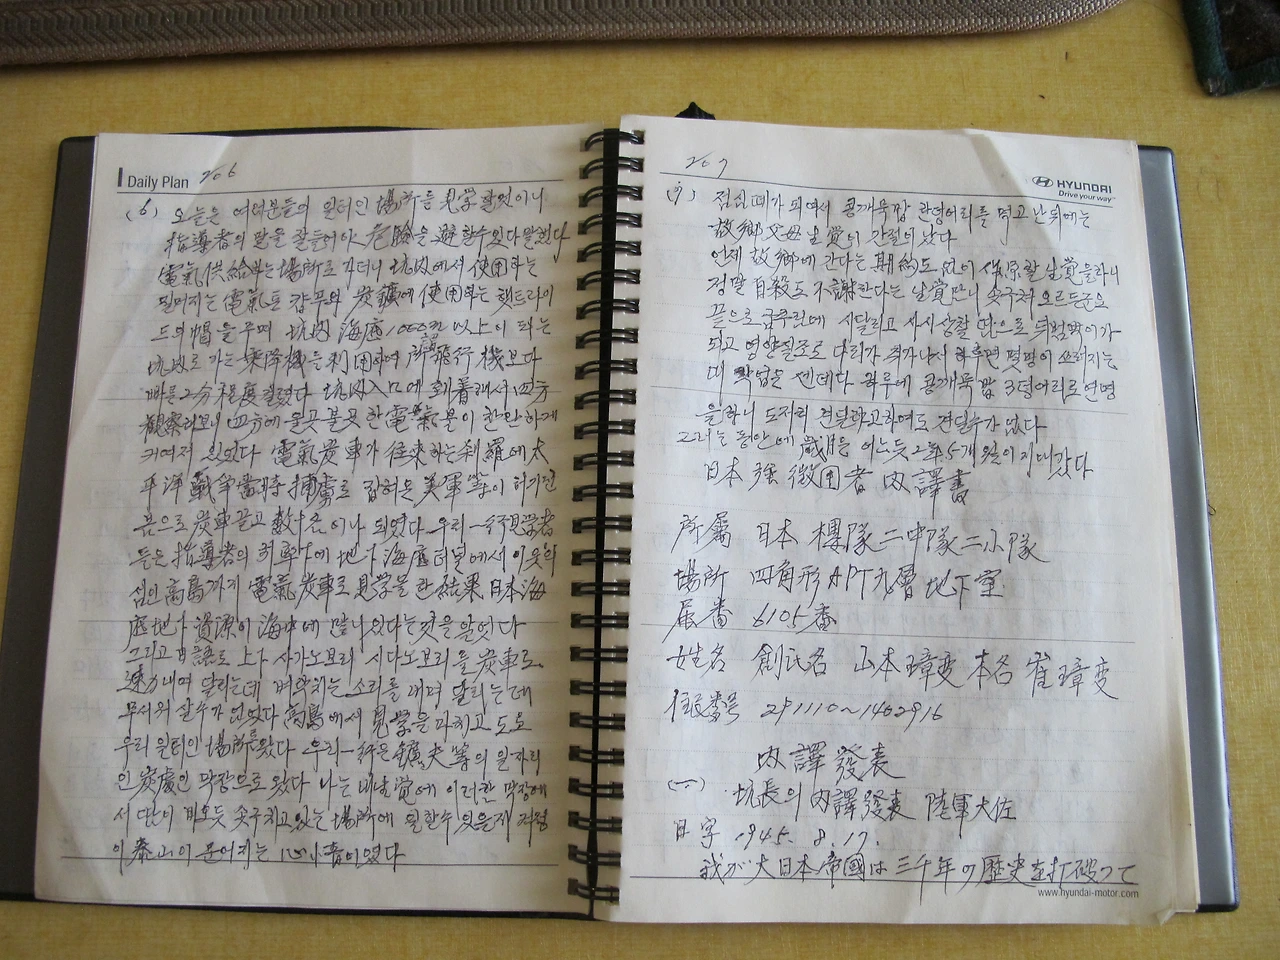 Daily Plan 206
(6) 오늘은 여러분들의 일터인 場所를 見学 할것이니
指導者의 말을 잘들어야 危險을 避할수있다 말했다
電氣供給하는 場所로 가더니 坑内에서 使用하는
電氣로 炭鑛에 使用하는 헷드라이
드의 帽을 쓰며 坑内 海底 1000 以上이 되는
坑内로 가는 乘降機를 利用하여 飛行機보다
빠른 2分 程度 걸렸다 坑内入口에 到着해서 四方
觀察하니 四方에 울긋불긋한 電氣불이 찬란하게
켜여저 있었다 電氣炭車가 往來하는 刹羅에 太
平洋戰争當時 捕虜로 잡혀온 美軍等이 허가진
몸으로 炭車끌고 數十名이나 되였다 우리 一行見学者
들은 指導者의 地가 海底터널에서 이웃의
섬인 高島까지 電氣炭車로 見学을 한 結果 日本海
底地가 資源이 海中에 많이있다는것을 알엇다
그리고 日語로 上가 사가노보리 시다노보리를 炭車로
速力내여 달리는데 소리를 내며 달리는데
무서워 살수가 없었다 高島에서 見学을 마치고 도로
우리 일터인 場所를 왔다 우리 一行은 鑛夫等의 일자리
인 炭廣인 막장으로 왔다 나는 내 生覚에 이러한 막장에
서 땀이 비오듯 솟구치고있는 場所에 일할수 있을지 걱정
이 泰山이 무어지는 心小音이였다
207
HYUNDAI
Drive your way
(7) 점심때가 되여서 콩개묵밥 한덩어리를 먹고 난뒤에는
故鄉父母 生覚이 간절하였다
언제 故鄉에 간다는 期約도 없이 生覚을하니
정말 自殺도 不謝한다는 生覚만이 솟구처 오르든군요
끝으로 굼주린데 시달리고 사시상찰 땀으로 되범벅이가
되고 영양실조로 다리가 쥐가나서 하루면 몇명이 쓰러지는
데 막업은 센데다 하루에 콩개묵밥 3덩어리로 연명
을하니 도저히 견딜라고하여도 견딜수가 없다
그러는 동안에 歲月은 어느듯 2年5개월이 지내갔다
日本 強徵用者 內譯書
所屬 日本 櫻隊二中隊二小隊
場所 四角形APT九層地下室
番 6105番
姓名 創氏名 山本璋変 本名 崔璋变
住民番号 291110~1402916
內譯發表
(一) 坑長의 內譯發表 陸軍大佐
日字 1945. 8. 17.
我が大日本帝國は三千年の歷史を打破つて
www.hyundai-motor.com